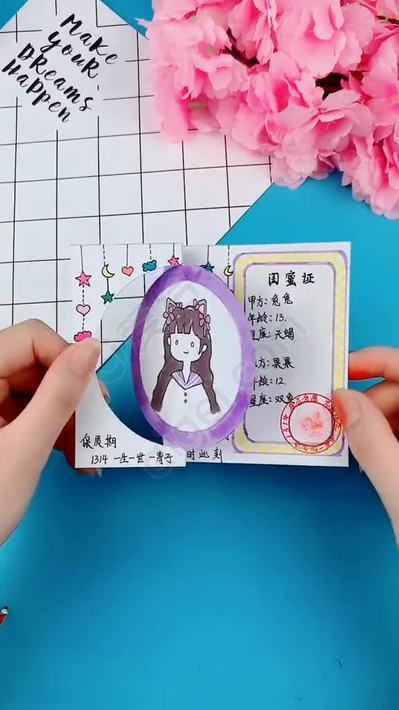 Make
your
DREAMS
Happen
闺蜜证
甲方:兔兔
年龄:13.
座:天蝎
方:果果
龄:12
座:双鱼
保质期
1314 一生一世一辈子
时此刻